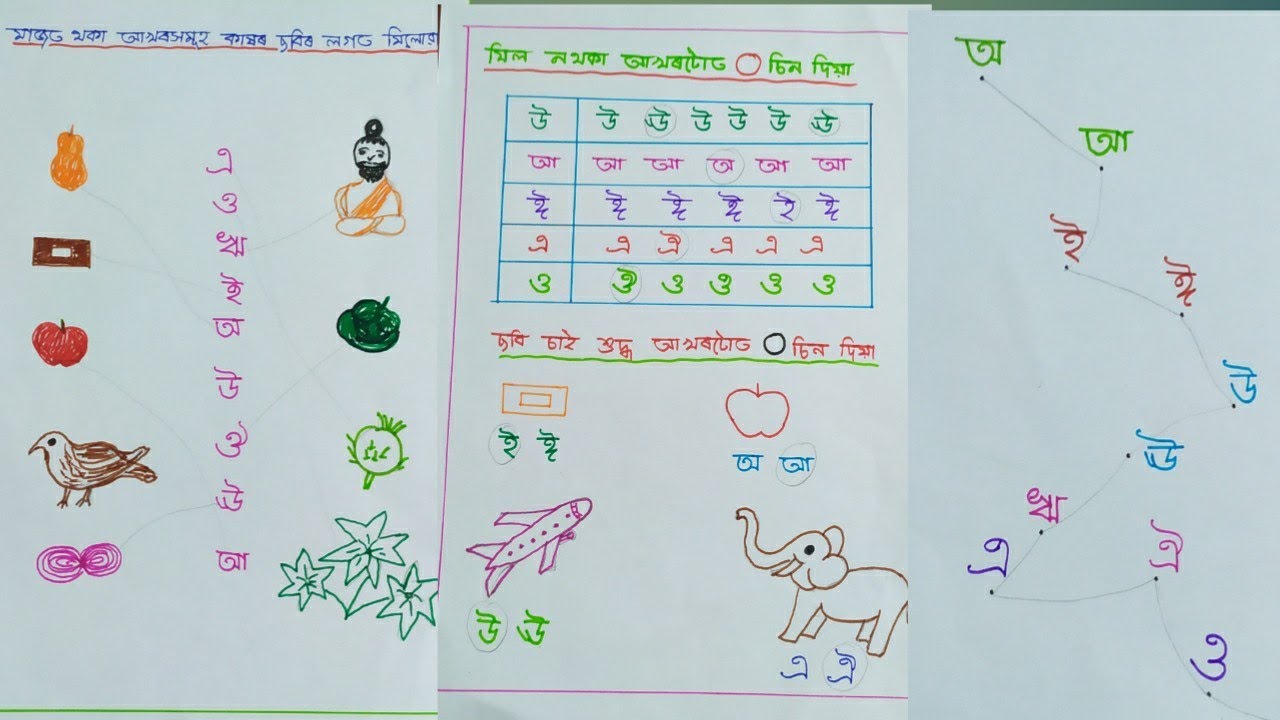 মাজত থকা আখৰসমূহ কাষৰ ছবিৰ লগত মিলোৱা
এ
ও
ঋ
ই
অ
উ
ঔ
ঊ
আ
মিল নথকা আখৰটোত ○ চিন দিয়া
উ উ ঊ উ উ উ ঊ
আ আ আ অ আ আ
ঈ ঈ ঈ ঈ ই ঈ
এ এ ঐ এ এ এ
ও ঔ ও ও ও ও
ছবি চাই শুদ্ধ আখৰটোত ○ চিন দিয়া
ই ঈ
অ আ
উ ঊ
এ ঐ
অ
আ
ই
ঈ
উ
ঊ
ঋ
এ
ঐ
ও